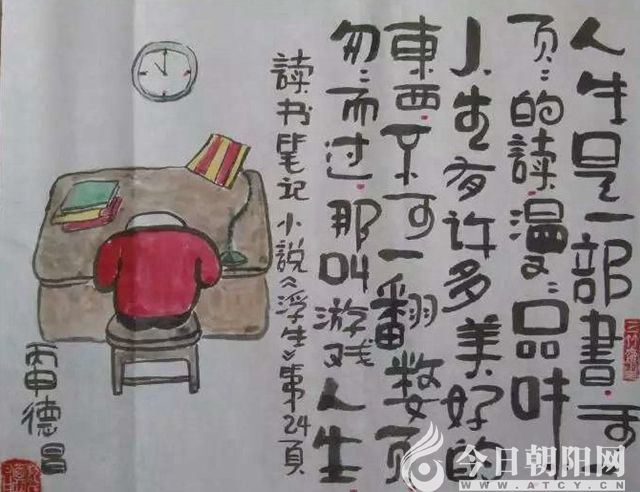 人生是一部書.可一
页:的讀.漫:品味
人生有许多美好的
東西.不可一翻数页
匆:而过.那叫游戏人生
读书笔记小説《浮生》第24頁
德昌
今日朝阳网
WWW.ATCY.CN